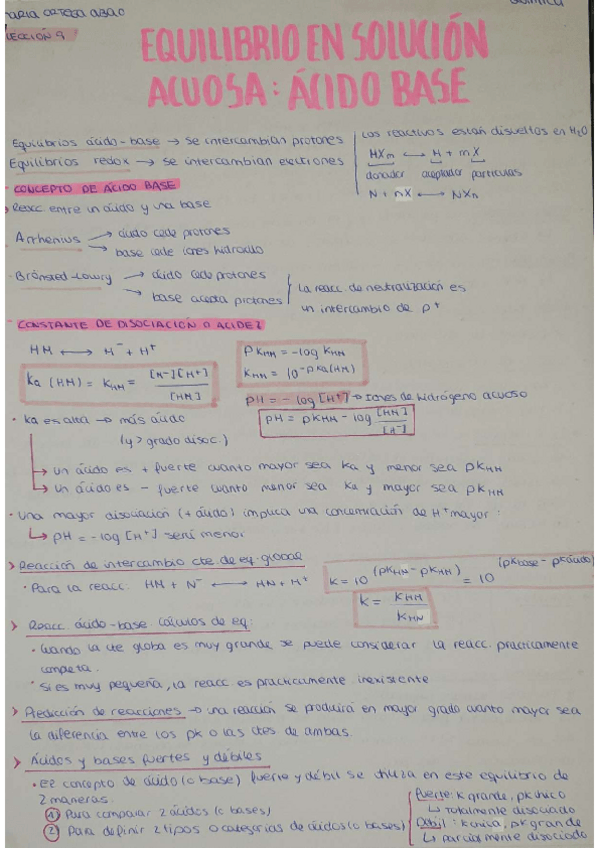 MARIA ORTEGA ABAD
Química
LECCIÓN 9
EQUILIBRIO EN SOLUCIÓN
ACUOSA: ÁCIDO BASE
Equilibrios ácido-base → se intercambian protones
Equilibrios redox → se intercambian electrones
Los reactivos están disueltos en H₂O
HXm ⟷ H + mX
donador aceptador partículas
N + nX ⟷ NXn
- CONCEPTO DE ÁCIDO BASE
Reacc entre un ácido y una base
Arrhenius → ácido cede protones
→ base cede iones hidroxilo
· Brönsted-Lowry → ácido cede protones
→ base acepta protones
La reacc. de neutralización es
un intercambio de p⁺
- CONSTANTE DE DISOCIACIÓN O ACIDEZ
HM ⟷ M⁻ + H⁺
Ka (HM) = KHM = [M⁻][H⁺] / [HM]
PKHM = -log KHM
KHM = 10^-pKa(HM)
pH = - log [H⁺] → Iones de hidrógeno acuoso
pH = pKHM - log [HM] / [M⁻]
· Ka es alta → más ácido
(y > grado disoc.)
↳ un ácido es + fuerte cuanto mayor sea Ka y menor sea pKHM
↳ un ácido es - fuerte cuanto menor sea Ka y mayor sea pKHM
· Una mayor disociación (+ ácido) implica una concentración de H⁺ mayor:
↳ pH = -log [H⁺] será menor
> Reacción de intercambio cte. de eq. global
· Para la reacc. HM + N⁻ ⟷ HN + M⁺
K = 10^(pKHN - pKHM) = 10^(pKbase - pKácido)
K = KHM / KHN
> Reacc. ácido-base. cálculos de eq:
· Cuando la cte globa es muy grande se puede considerar la reacc. prácticamente
completa.
· Si es muy pequeña, la reacc es prácticamente inexistente
> Predicción de reacciones → una reacción se producirá en mayor grado cuanto mayor sea
la diferencia entre los pK o las ctes de ambas.
> Ácidos y bases fuertes y débiles
· El concepto de ácido (o base) fuerte y débil se utiliza en este equilibrio de
2 maneras.
① Para comparar 2 ácidos (o bases)
② Para definir 2 tipos o categorías de ácidos (o bases)
Fuerte: K grande, pK chico
↳ totalmente disociado
Débil: K chica, pK grande
↳ parcialmente disociado